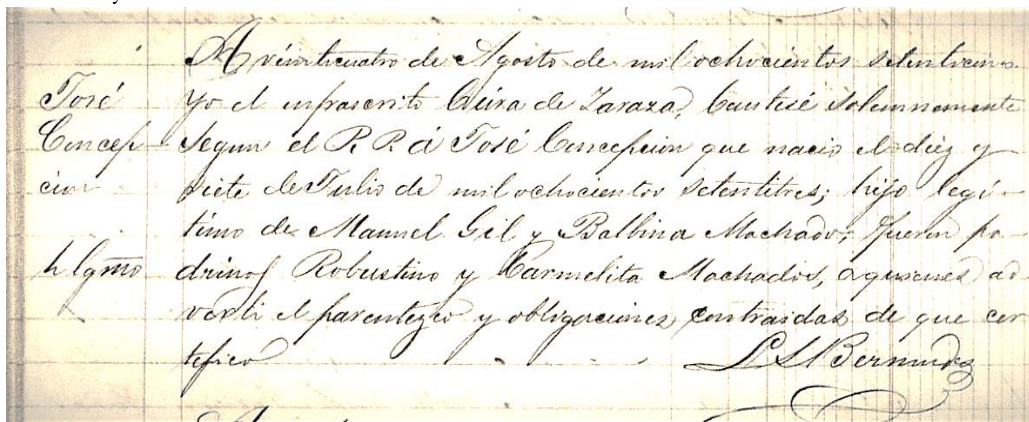 José
Concep
cion
h lgmo
A veinticuatro de Agosto de mil ochocientos setenticinco
Yo el infrascrito Cura de Zaraza, bautisé solemnemente
segun el R. R. á José Concepcion que nacio el diez y
siete de Julio de mil ochocientos setentitres; hijo legi-
timo de Manuel Gil y Balbina Machado; fueron pa-
drinos Robustino y Carmelita Machados, a quienes ad
verti el parentezco y obligaciones contraidas de que cer
tifico
Bermudez